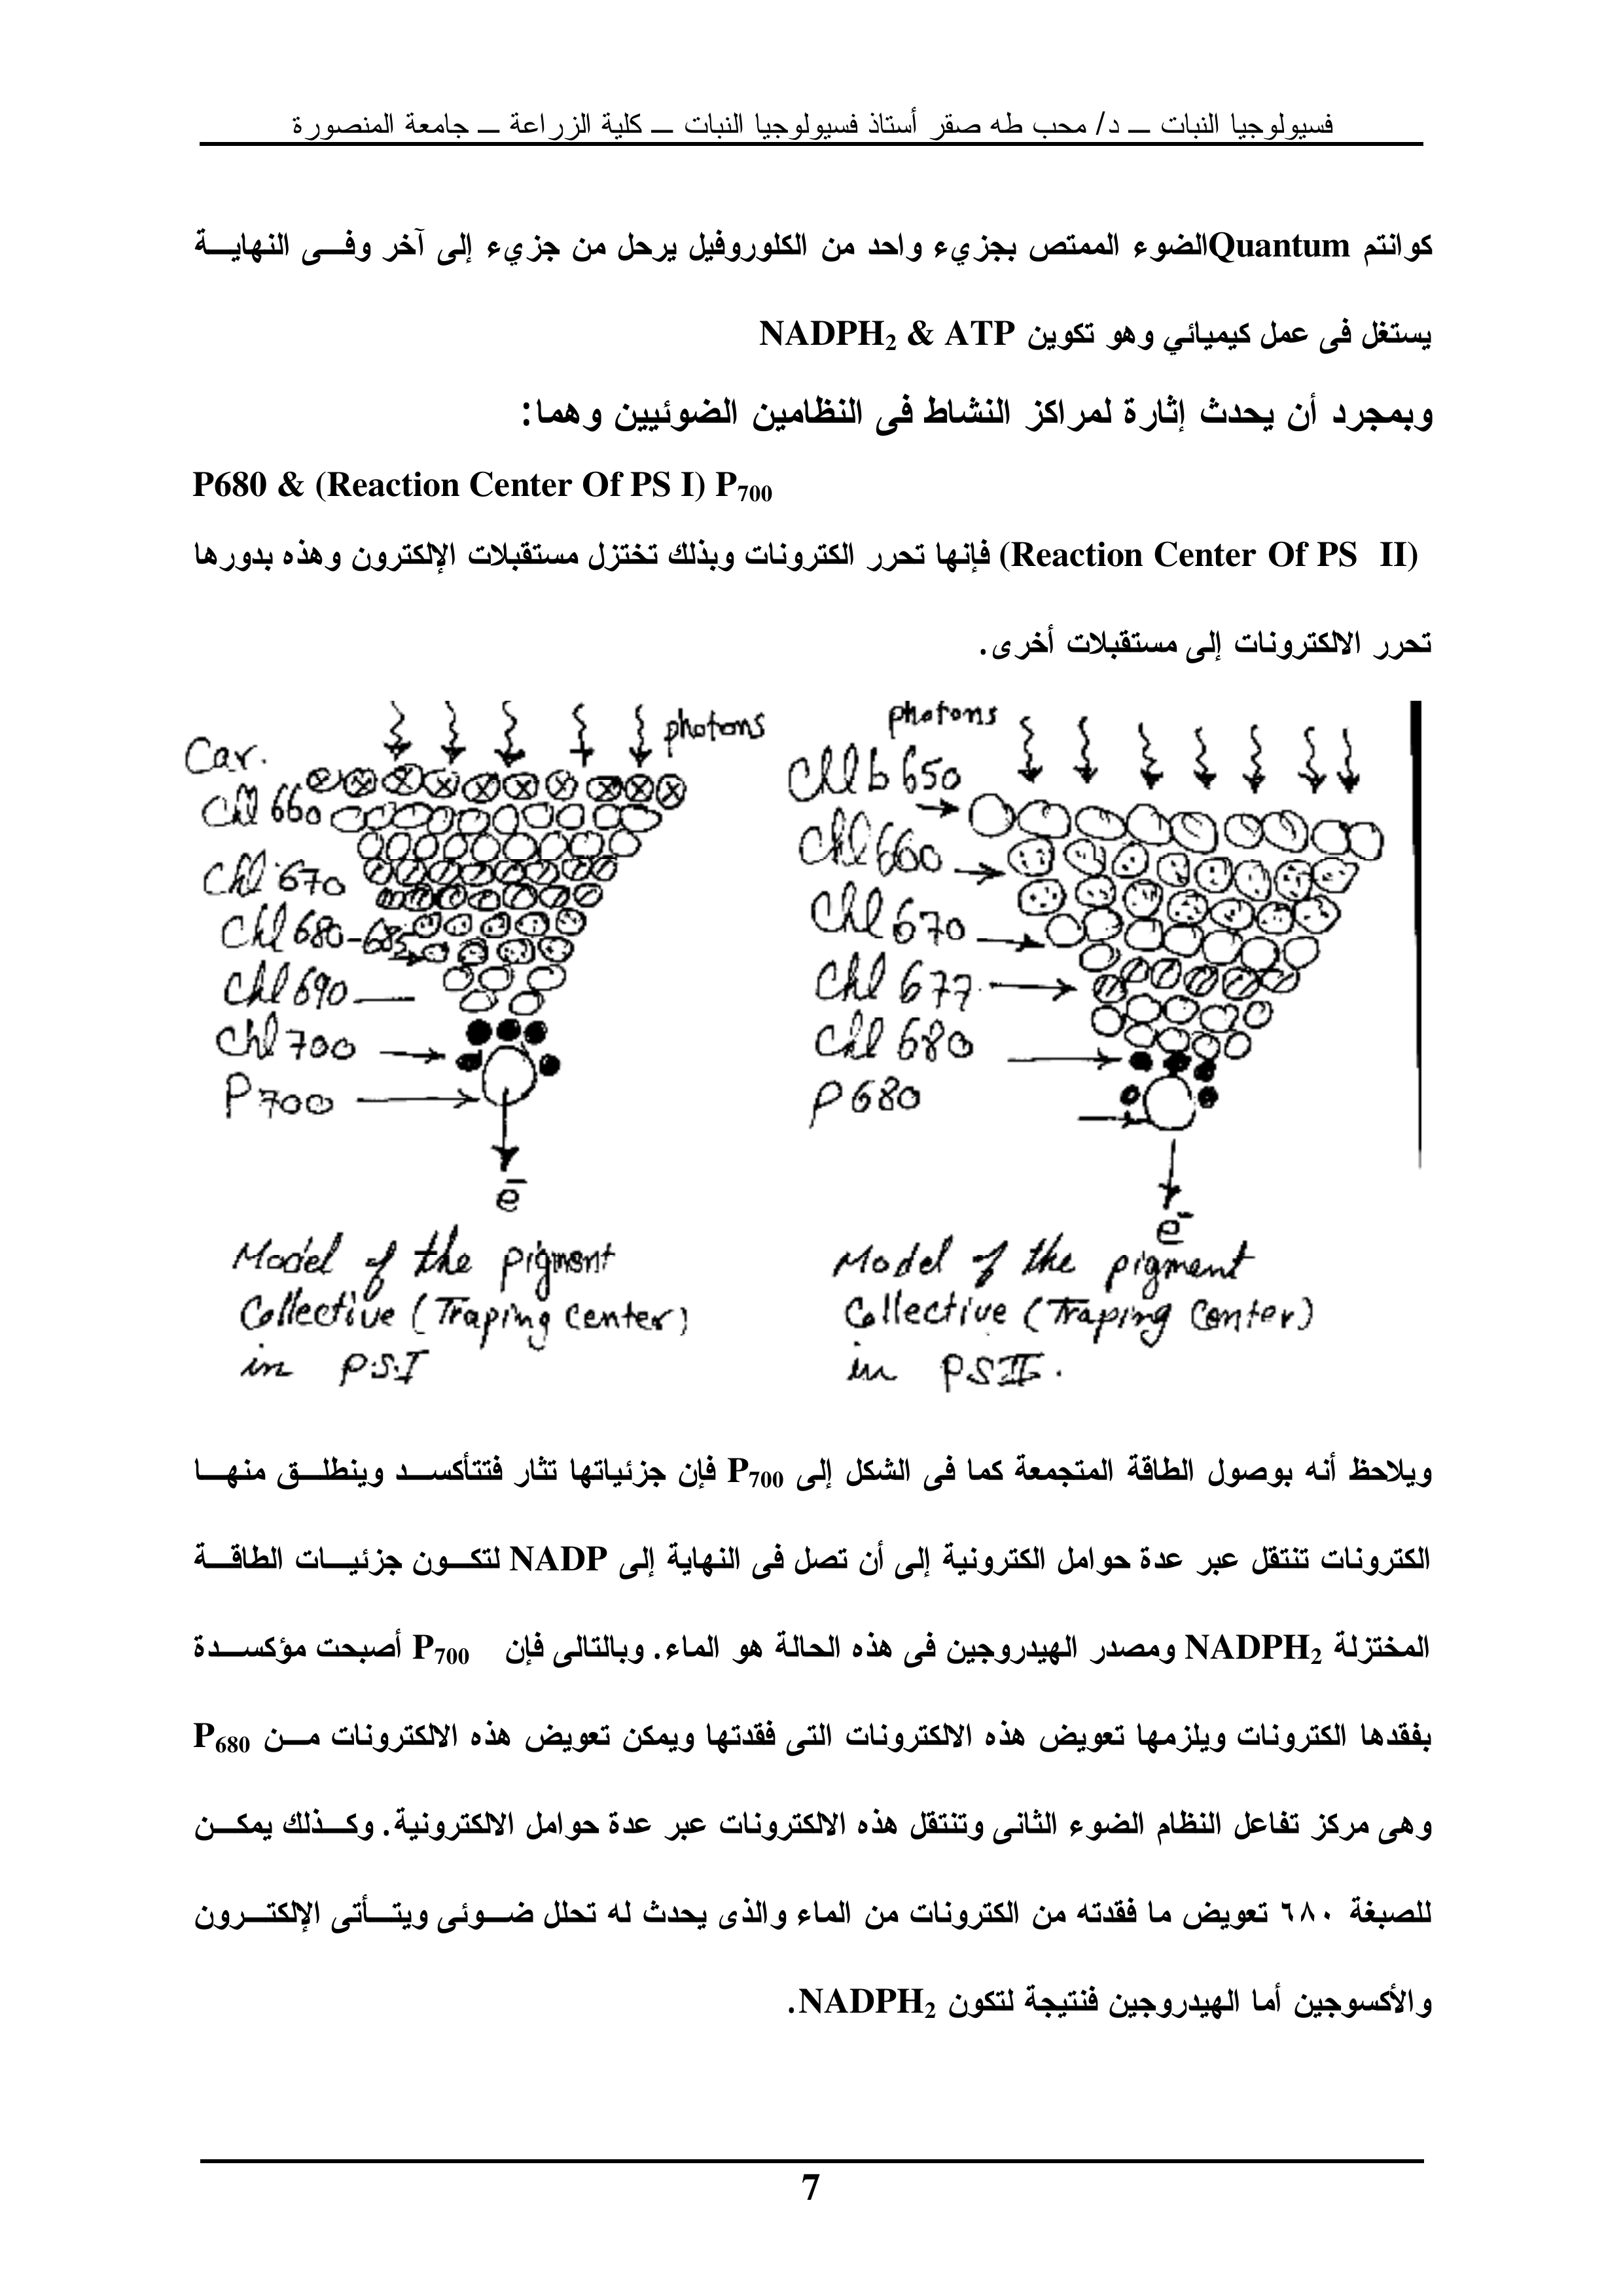 فسيولوجيا النبات ــ د/ محب طه صقر أستاذ فسيولوجيا النبات ــ كلية الزراعة ــ جامعة المنصورة
كوانتم Quantumالضوء الممتص بجزيء واحد من الكلوروفيل يرحل من جزيء إلى آخر وفى النهاية
يستغل فى عمل كيميائي وهو تكوين NADPH₂ & ATP
وبمجرد أن يحدث إثارة لمراكز النشاط فى النظامين الضوئيين وهما:
P680 & (Reaction Center Of PS I) P₇₀₀
(Reaction Center Of PS II) فإنها تحرر الكترونات وبذلك تختزل مستقبلات الإلكترون وهذه بدورها
تحرر الالكترونات إلى مستقبلات أخرى.
photons
Car.
Chl 660
Chl 670
Chl 680-685
Chl 690
Chl 700
P700
e-
Model of the pigment
Collective (Traping Center)
in P.S.I
photons
Chl b 650
Chl 660
Chl 670
Chl 677
Chl 680
P680
e-
Model of the pigment
Collective (Traping Center)
in PSII.
ويلاحظ أنه بوصول الطاقة المتجمعة كما فى الشكل إلى P₇₀₀ فإن جزئياتها تثار فتتأكسد وينطلق منها
الكترونات تنتقل عبر عدة حوامل الكترونية إلى أن تصل فى النهاية إلى NADP لتكون جزئيات الطاقة
المختزلة NADPH₂ ومصدر الهيدروجين فى هذه الحالة هو الماء. وبالتالى فإن P₇₀₀ أصبحت مؤكسدة
بفقدها الكترونات ويلزمها تعويض هذه الالكترونات التى فقدتها ويمكن تعويض هذه الالكترونات من P₆₈₀
وهى مركز تفاعل النظام الضوء الثانى وتنتقل هذه الالكترونات عبر عدة حوامل الالكترونية. وكذلك يمكن
للصبغة ٦٨٠ تعويض ما فقدته من الكترونات من الماء والذى يحدث له تحلل ضوئى ويتأتى الإلكترون
والأكسوجين أما الهيدروجين فنتيجة لتكون NADPH₂.
7